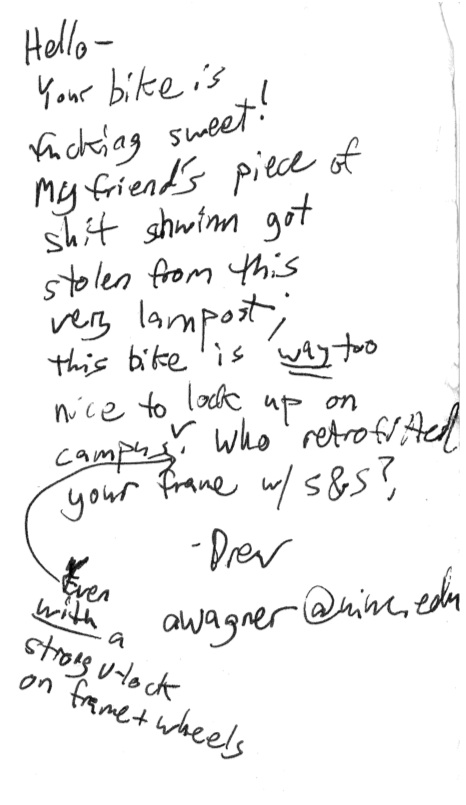 Hello-
Your bike is
fucking sweet!
My friend's piece of
shit shwinn got
stolen from this
very lampost;
this bike is way too
nice to lock up on
campus. Who retrofitted
your frame w/ S&S?,
-Drew
awagner@
Even
with a
strong u-lock
on frame + wheels